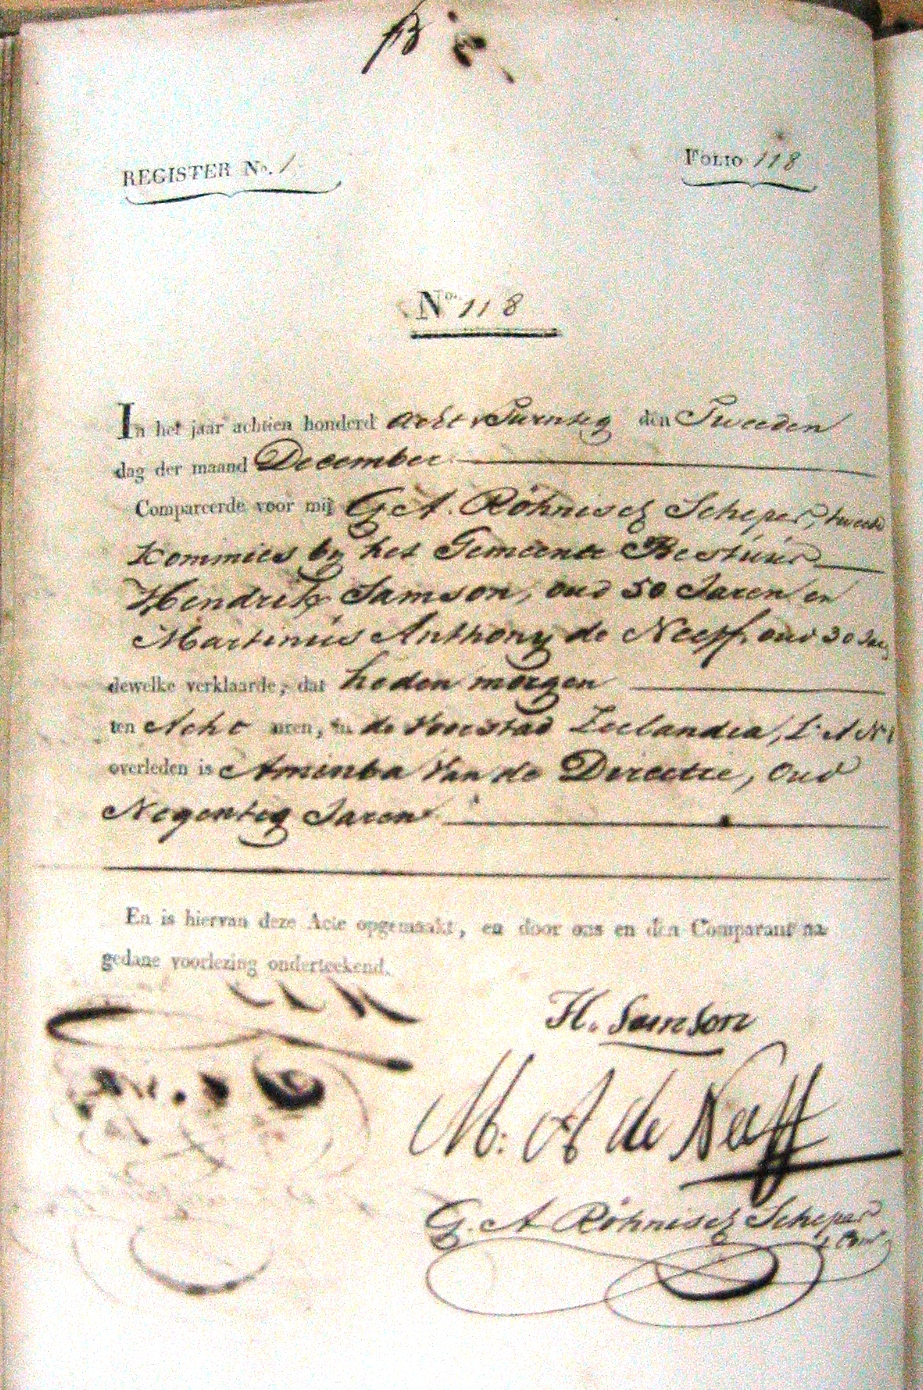 REGISTER No. 1
FOLIO 118
No. 118
In het jaar achtien honderd acht & Twintig den Tweeden
dag der maand December
Compareerde voor mij G. A. Röhnisch Scheper, tweede
Kommies by het Gemeente Bestüür
Hendrik Samson, oud 50 Jaren en
Martinüs Anthony de Neeff, oud 30 Jaer
dewelke verklaarde, dat heden morgen
ten Acht uren, in de Voorstad Zeelandia, L: A No 1
overleden is Aminba van de Directie, Oud
Negentig Jaren
En is hiervan deze Acte opgemaakt, en door ons en den Comparant na
gedane voorlezing onderteekend.
H. Samson
M: A de Neeff
G. A Röhnisch Scheper